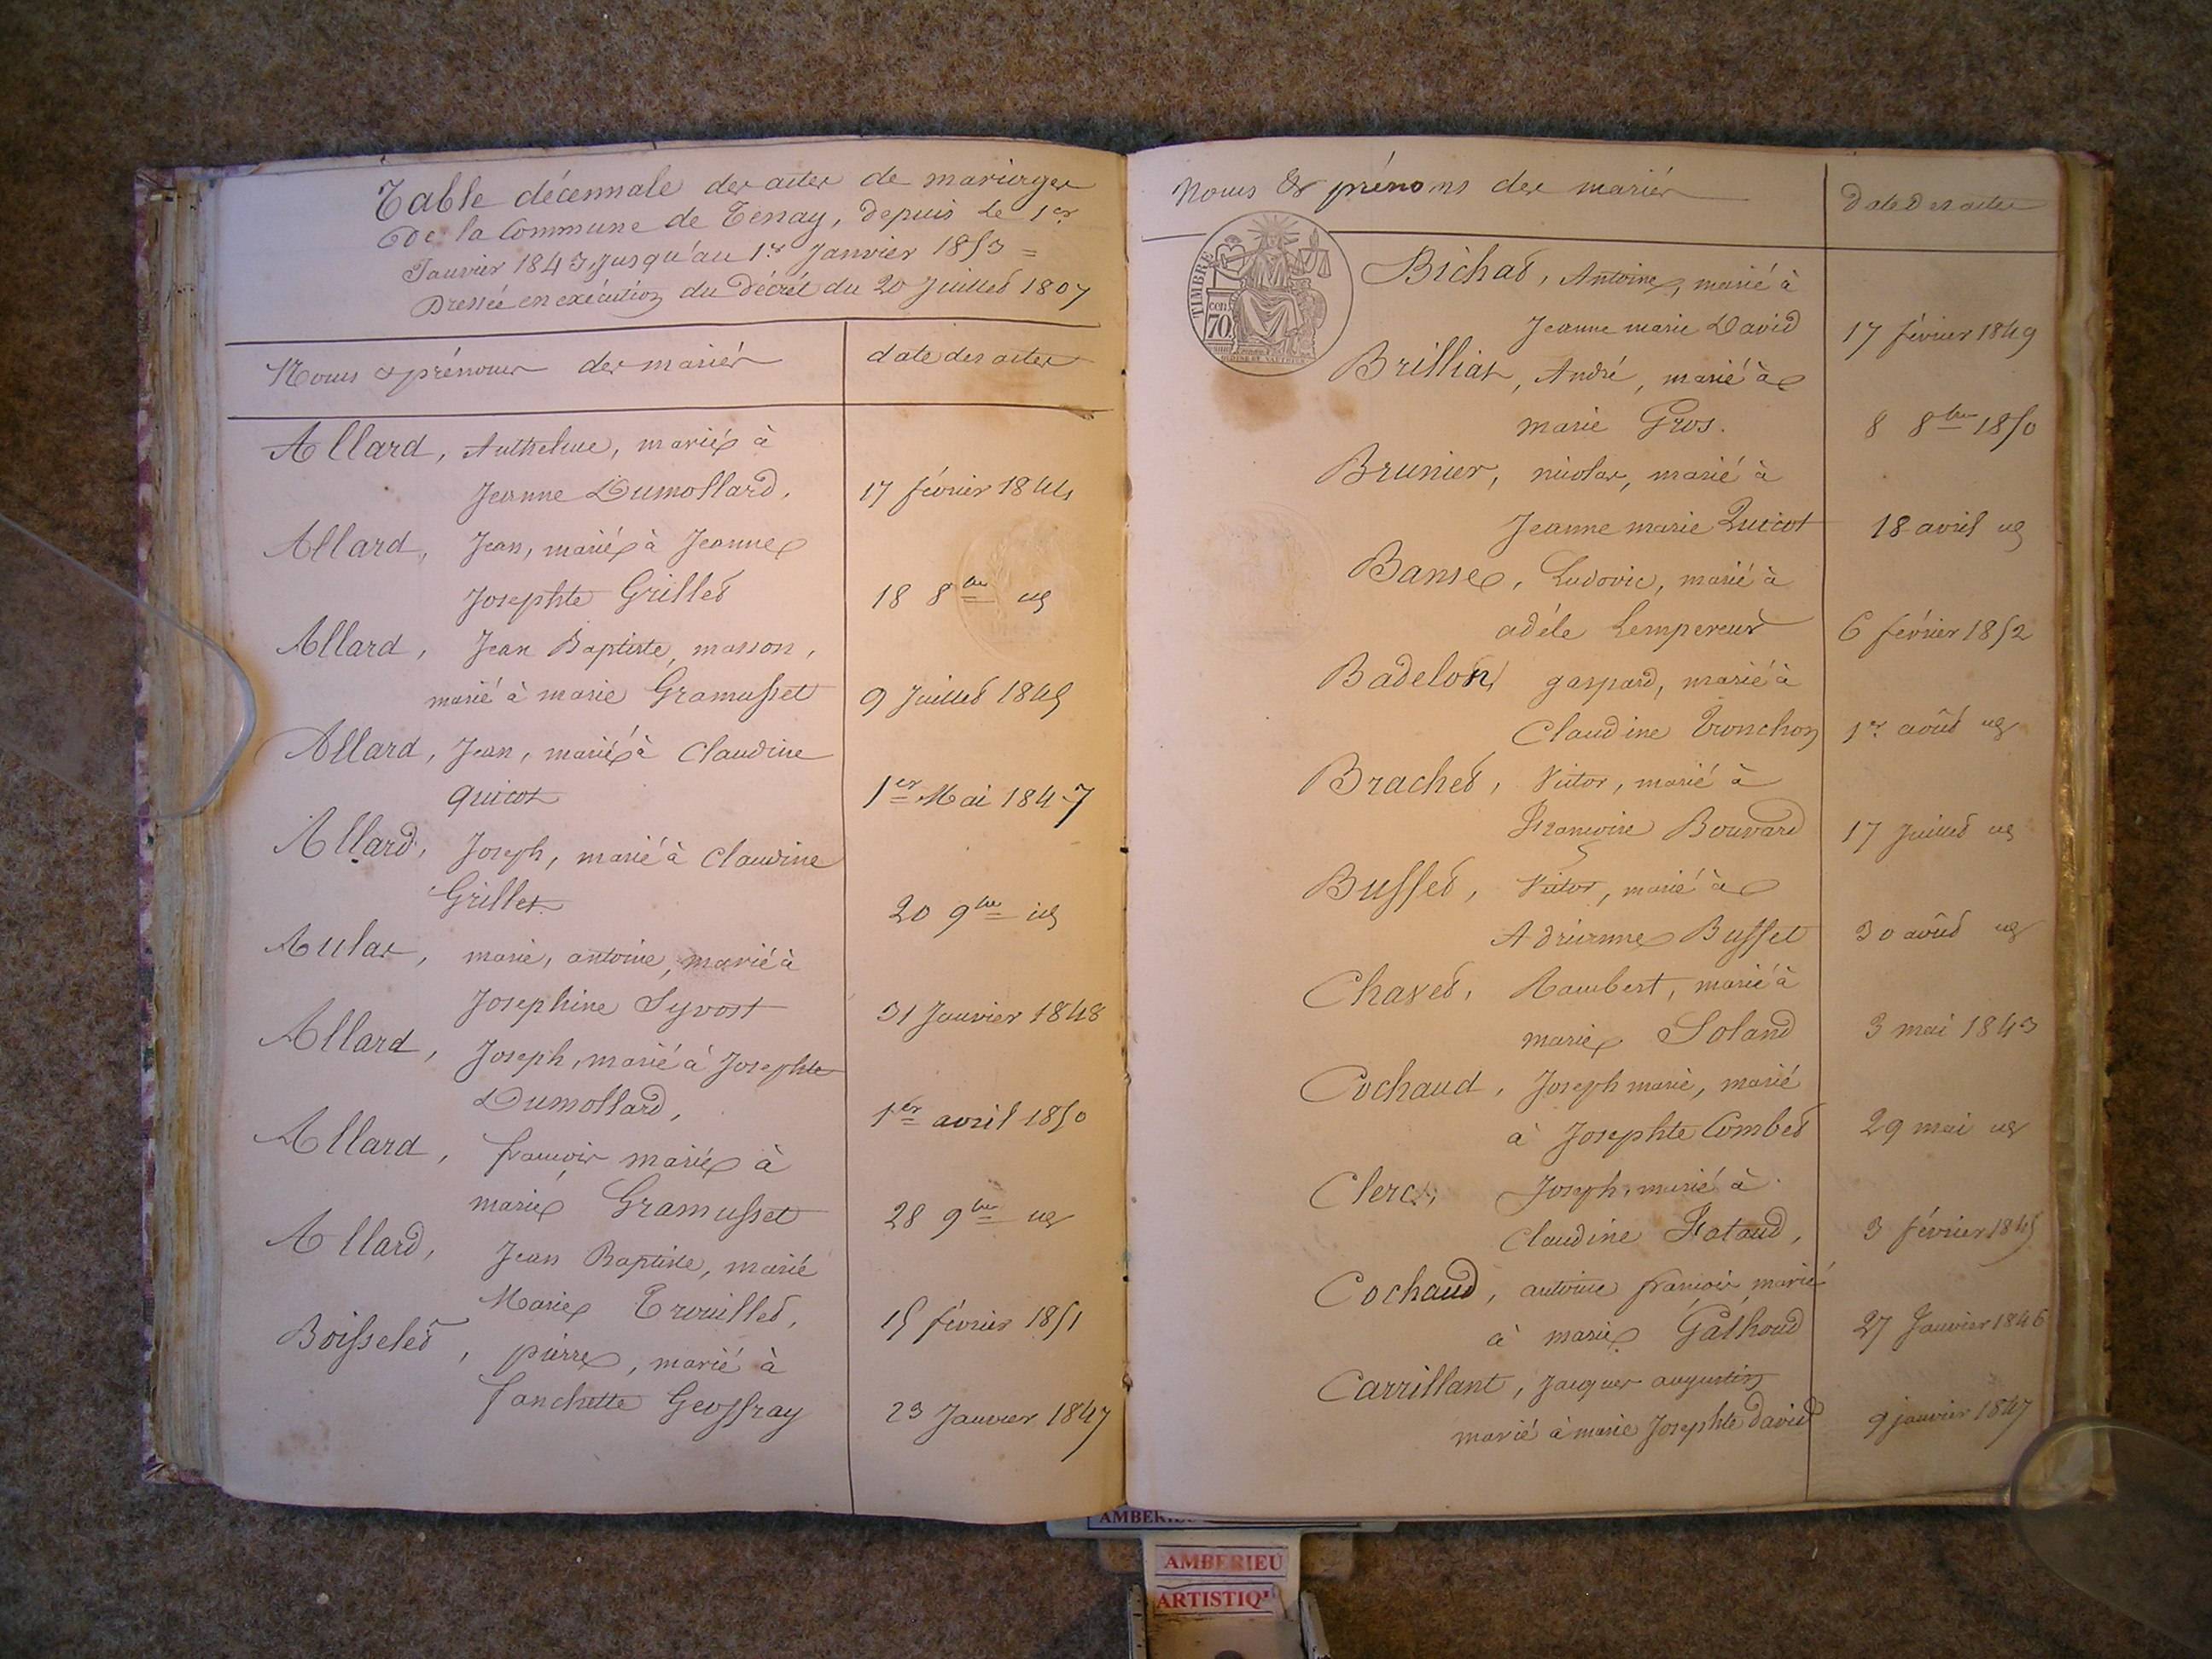 Table décennale des actes de mariages
de la Commune de Tenay, depuis le 1er
Janvier 1843, jusqu'au 1er Janvier 1853 =
Dressée en exécution du Décret du 20 Juillet 1807
Noms & prénoms des mariés
date des actes
Allard, Anthelme, marié à
Jeanne Dumollard,
17 février 1844
Allard, Jean, marié à Jeanne
Josephte Grillet
18 8bre id
Allard, Jean Baptiste, masson,
marié à marie Gramusset
9 Juillet 1845
Allard, Jean, marié à Claudine
Quicot
1er Mai 1847
Allard, Joseph, marié à Claudine
Grillet
20 9bre id
Aulas, marie, antoine, marié à
Josephine Syvost
31 Janvier 1848
Allard, Joseph, marié à Josephte
Dumollard,
1er avril 1850
Allard, francois marié à
marie Gramusset
28 9bre id
Allard, Jean Baptiste, marié
Marie Trouillet,
15 février 1851
Boisselet, pierre, marié à
fanchette Geoffray
23 Janvier 1847
Noms & prénoms des mariés
date des actes
TIMBRE
cen.
70
Bichat, Antoine, marié à
Jeanne marie David
17 février 1849
Brillat, André, marié à
marie Gros.
8 8bre 1850
Brunier, nicolas, marié à
Jeanne marie Quicot
18 avril id
Banse, Ludovic, marié à
adèle Lempereur
6 février 1852
Badelon, gaspard, marié à
Claudine Tronchon
1er août id
Brachet, Victor, marié à
Françoise Bouvard
17 Juillet id
Busset, Victor, marié à
Adrienne Busset
30 août id
Chavet, Rambert, marié à
marie Soland
3 mai 1843
Cochaud, Joseph marie, marié
à Josephte Combet
29 mai id
Clerc, Joseph, marié à
Claudine Fataud,
3 février 1845
Cochaud, antoine françois marié
à marie Gathoud
27 Janvier 1846
Carrillant, Jacques augustin
marié à marie Josephte David
9 janvier 1847
AMBERIEU
ARTISTIQU